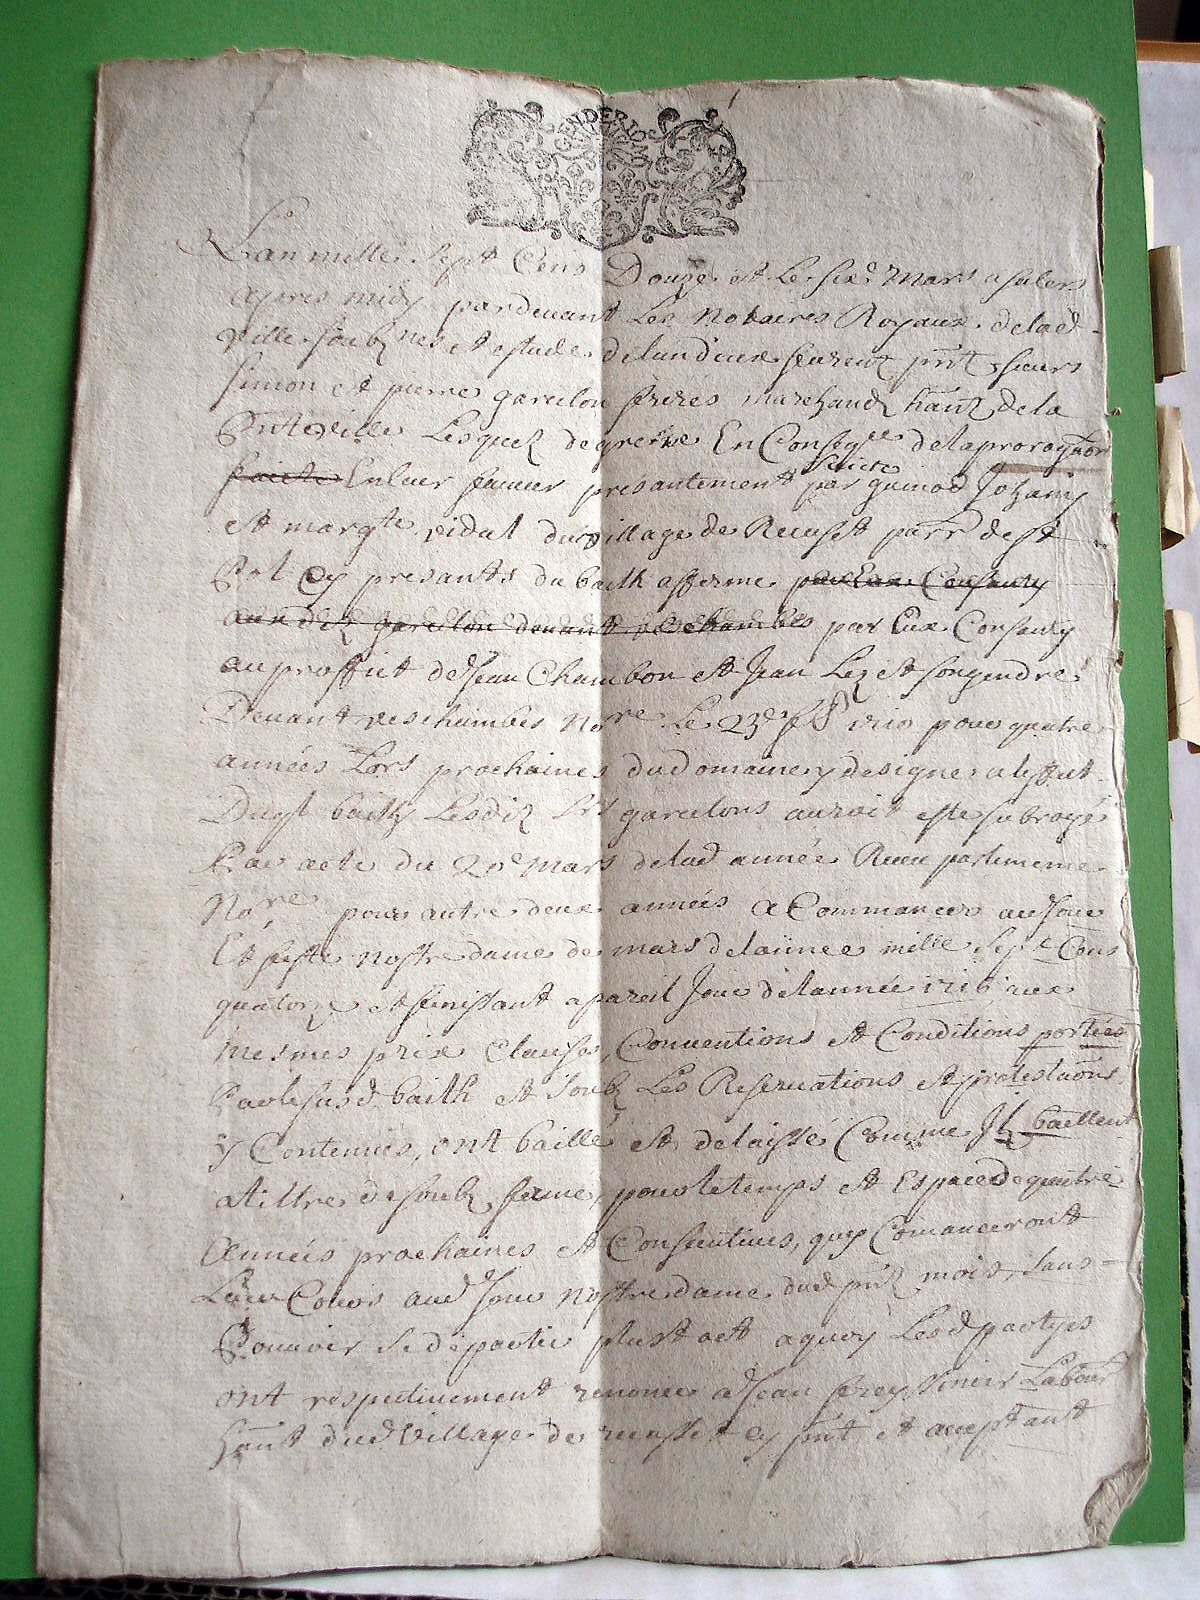 L'an mille sept Cens Douze et Le six.e Mars a salers
apres midy pardevant Les Notaires Royaux de lad.
ville soubz.nes et estude de lun d'eux furent p.nt sieurs
simon et pierre garcelon freres marchandz han.tz de la
d.te ville Lesquelz de gre En Conseq.ce de la prorogaon
faicte En leur faveur presantement faicte par guinod Johany
et marg.te vidal du village de Recuset parr.e de s.t
Pol Cy presants du bailh afferme par Eux Consanty
aux d.z garcelon devant deschambes par Eux Consanty
au proffict de Jean Chambon et Jean Lez et son gendre
Devant deschambes No.re Le 23.e 1710 pour quatre
années Lors prochaines du domaine y designe a leffect
Duq.l bailh Lesdiz srs garcelons auroit este subrogé
Par acte du 20.e Mars de lad année Receu par le meme
No.re pour autre deux années a Commancer au Jour
Et feste nostre dame de mars de lannee mille sept Cens
quatorze et finissant a pareil Jour de lannée 1716 aux
mesmes prix Clauses, Conventions et Conditions portées
Par le susd. bailh et soubz Les Reservations et protestaons
y Contenues, ont baillé et delaissé Comme Ilz baillent
a tiltre de soubz ferme, pour le temps et Espace de quatre
Années prochaines et Consecutives, quy Comanceront
Leur Cours aud Jour Nostre dame dud p.nt mois, sans
Pouvoir se departir plustost a quoy Lesd partyes
ont respectivement renoncé a Jean frey Labour
han.t dud village de recusset cy p.nt et acceptant